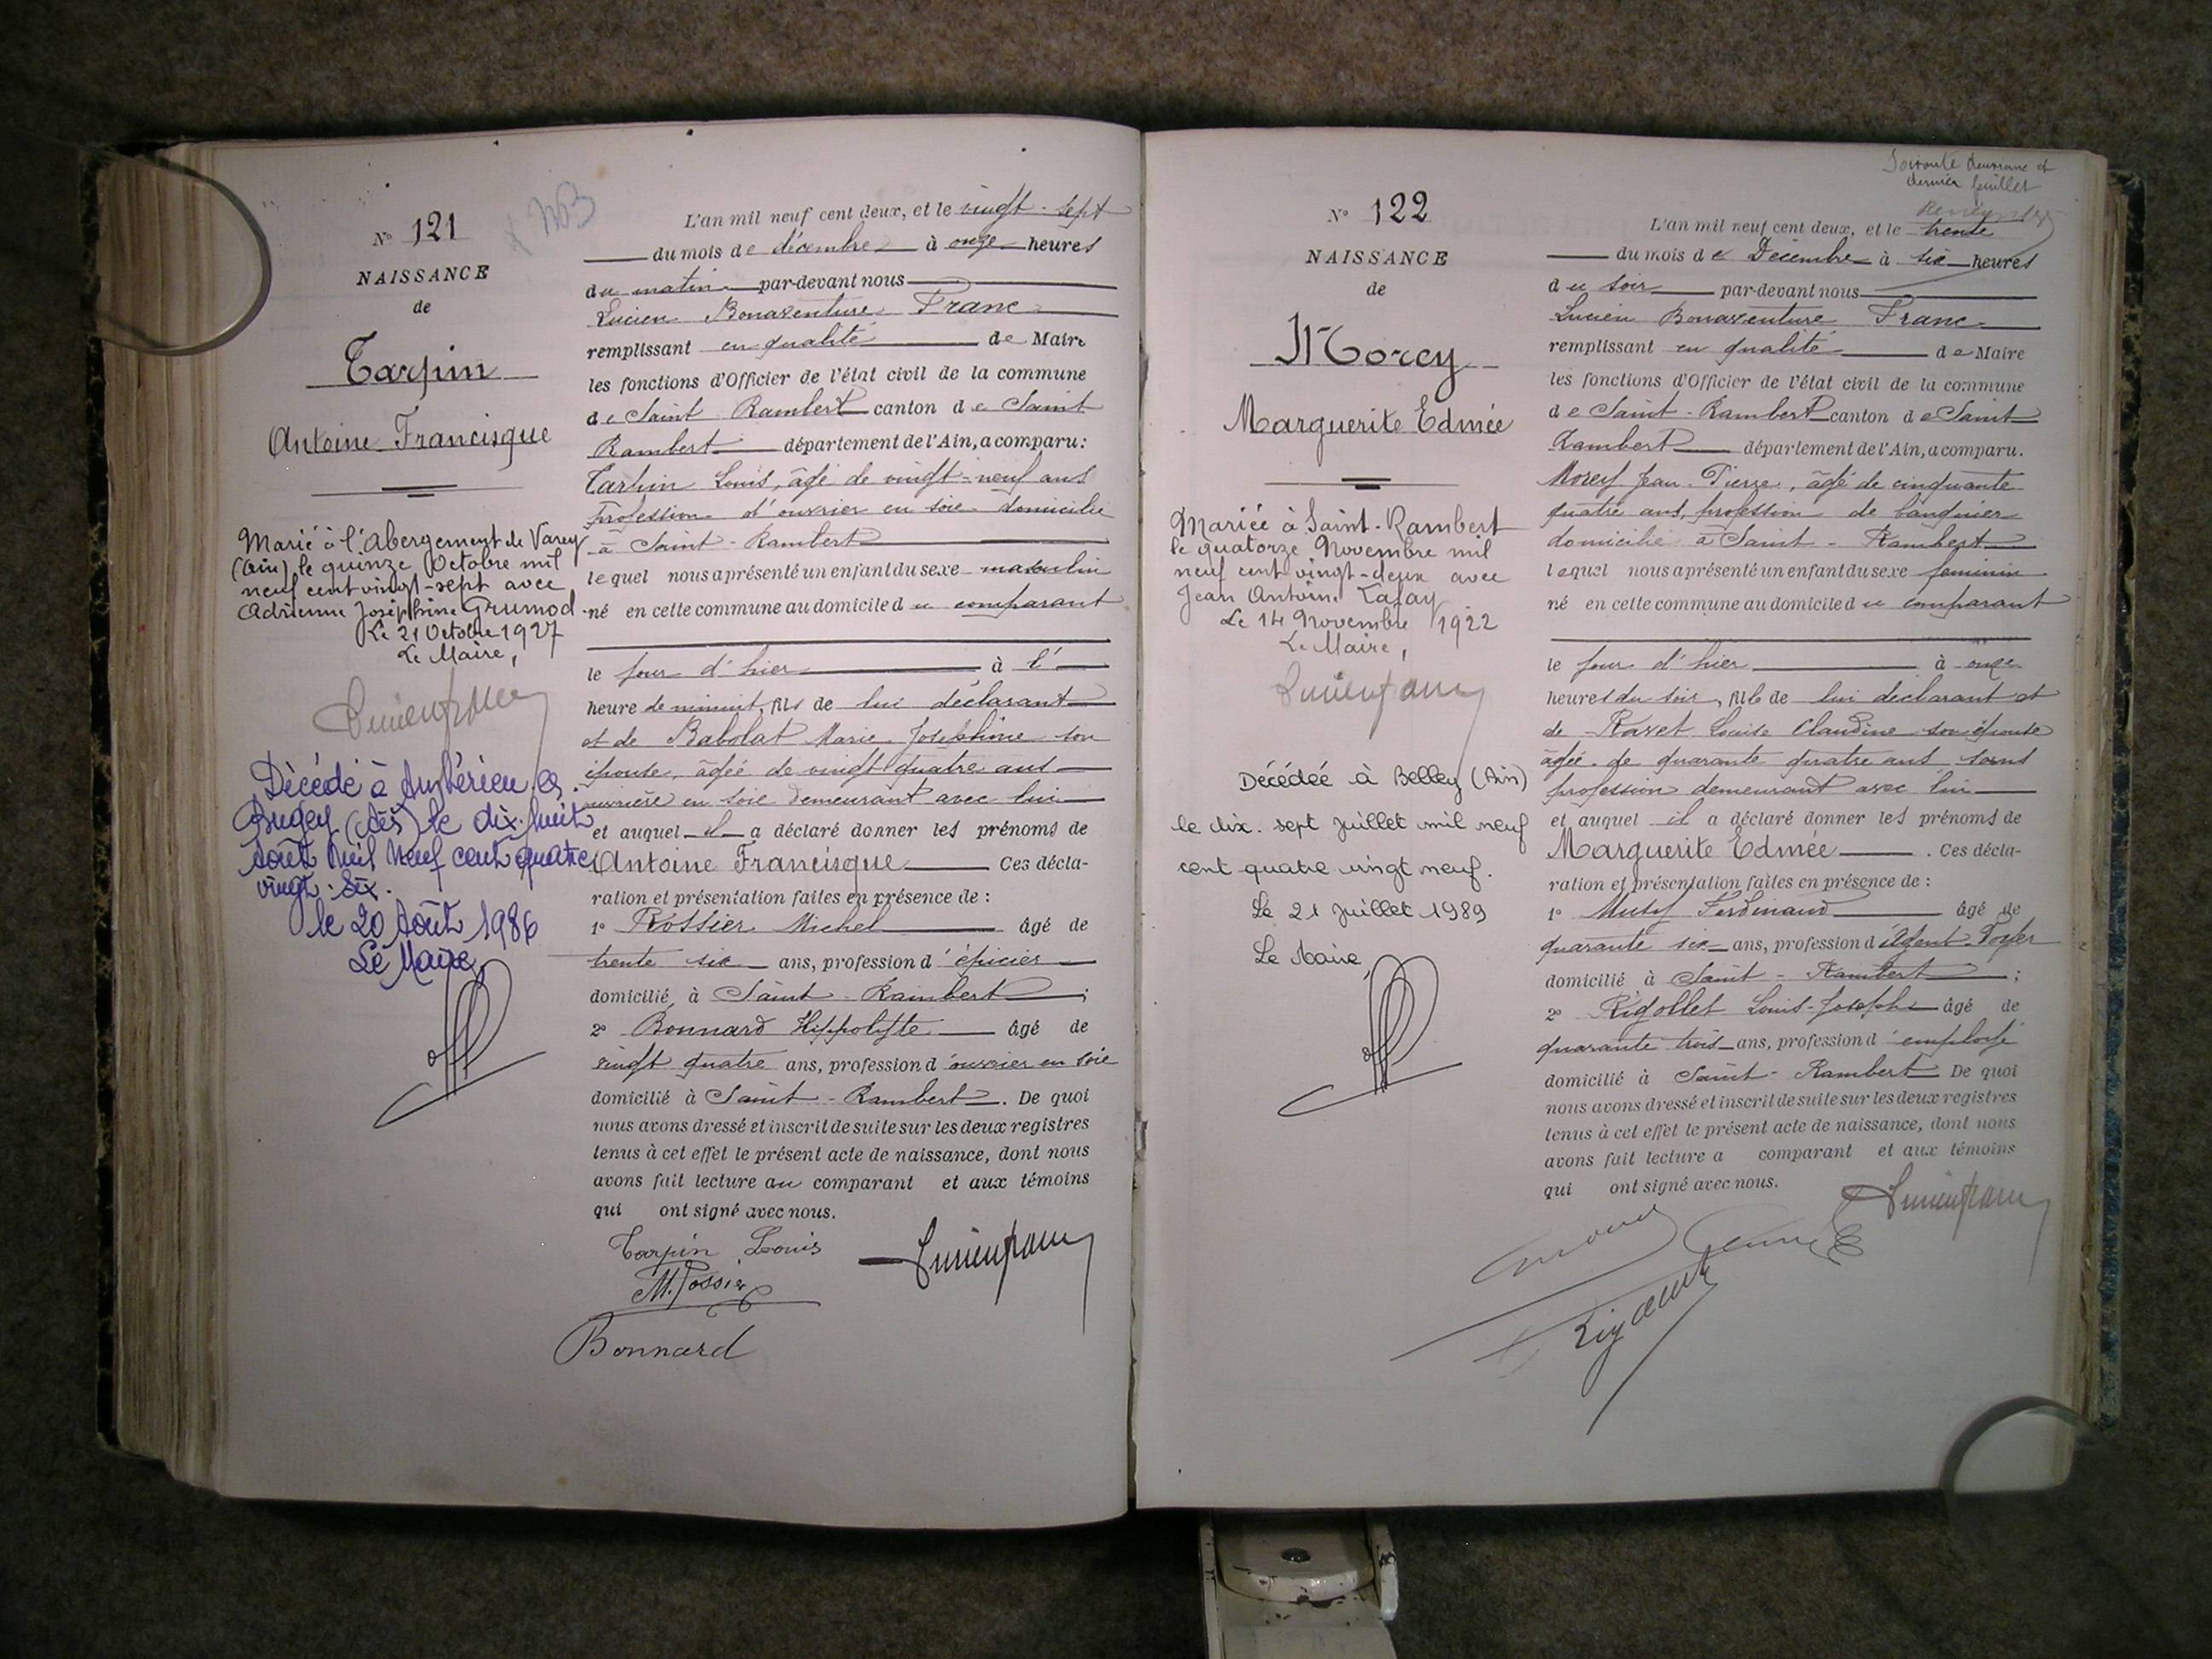 N° 121
NAISSANCE
de
Tarpin
Antoine Francisque
Marié à l'Abergement de Varey
(Ain) le quinze Octobre mil
neuf cent vingt-sept avec
Adrienne Joséphine Grumod
Le 21 Octobre 1927
Le Maire,
Lucien franc
Décédé à Ambérieu en
Bugey (Ain) le dix-huit
Août Mil Neuf cent quatre
vingt-six.
le 20 Août 1986
Le Maire,
L'an mil neuf cent deux, et le vingt-sept
du mois de décembre à onze heures
du matin par-devant nous
Lucien Bonaventure Franc
remplissant en qualité de Maire
les fonctions d'Officier de l'état civil de la commune
de Saint Rambert canton de Saint
Rambert département de l'Ain, a comparu:
Tarpin Louis, âgé de vingt-neuf ans
profession d'ouvrier en soie domicilié
à Saint-Rambert
lequel nous a présenté un enfant du sexe masculin
né en cette commune au domicile du comparant
le jour d'hier à l'
heure de minuit, fils de lui déclarant
et de Babolat Marie Joséphine son
épouse, âgée de vingt quatre ans
ouvrière en soie demeurant avec lui
et auquel il a déclaré donner les prénoms de
Antoine Francisque Ces décla-
ration et présentation faites en présence de :
1° Rossier Michel âgé de
trente six ans, profession d'épicier
domicilié à Saint-Rambert ;
2° Bonnard Hippolyte âgé de
vingt quatre ans, profession d'ouvrier en soie
domicilié à Saint-Rambert. De quoi
nous avons dressé et inscrit de suite sur les deux registres
tenus à cet effet le présent acte de naissance, dont nous
avons fait lecture au comparant et aux témoins
qui ont signé avec nous.
Tarpin Louis
Lucien franc
M. Rossier
Bonnard
dernier feuillet
N° 122
NAISSANCE
de
Morey
Marguerite Edmée
Mariée à Saint-Rambert
le quatorze Novembre mil
neuf cent vingt-deux avec
Jean Antoine Lafay
Le 14 Novembre 1922
Le Maire,
Lucien franc
Décédée à Belley (Ain)
le dix. sept juillet mil neuf
cent quatre vingt neuf.
Le 21 juillet 1989
Le Maire,
L'an mil neuf cent deux, et le trente
du mois de Décembre à six heures
du soir par-devant nous
Lucien Bonaventure Franc
remplissant en qualité de Maire
les fonctions d'Officier de l'état civil de la commune
de Saint-Rambert canton de Saint
Rambert département de l'Ain, a comparu.
Morey Jean-Pierre, âgé de cinquante
quatre ans, profession de banquier
domicilié à Saint-Rambert
lequel nous a présenté un enfant du sexe féminin
né en cette commune au domicile du comparant
le jour d'hier à onze
heures du soir, fille de lui déclarant et
de Ravet Louise Claudine son épouse
âgée de quarante quatre ans sans
profession demeurant avec lui
et auquel il a déclaré donner les prénoms de
Marguerite Edmée . Ces décla-
ration et présentation faites en présence de :
1° Ferdinand âgé de
quarante six ans, profession d'Agent Voyer
domicilié à Saint-Rambert ;
2° Rigollet Louis-Joseph âgé de
quarante trois ans, profession d'employé
domicilié à Saint-Rambert De quoi
nous avons dressé et inscrit de suite sur les deux registres
tenus à cet effet le présent acte de naissance, dont nous
avons fait lecture a comparant et aux témoins
qui ont signé avec nous.
Lucien franc